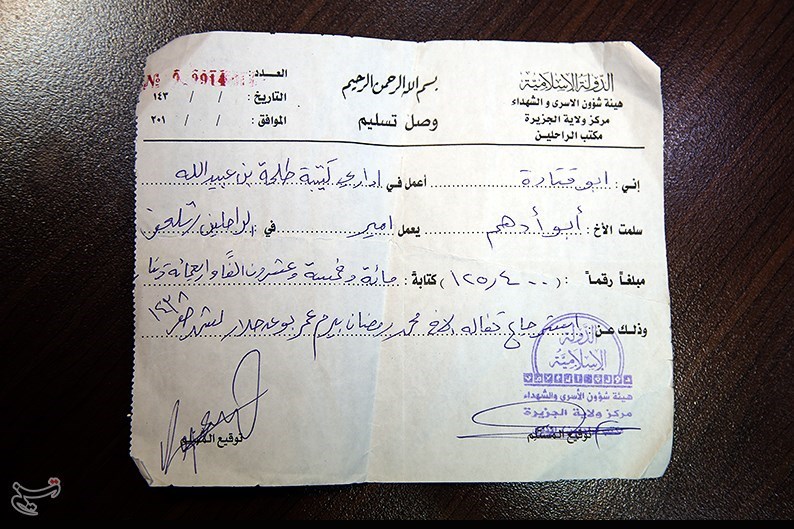 بسم الله الرحمن الرحيم
وصل تسليم
الدولة الإسلامية
هيئة شؤون الاسرى والشهداء
مركز ولاية الجزيرة
مكتب الراحلين
العدد: № 9914
التاريخ: / / ١٤٣
الموافق: / / ٢٠١
إني: ابو قتادة أعمل في اداري كتيبة طلحة بن عبيد الله
سلمت الأخ: أبو أدهم يعمل امير في الراحلين
مبلغاً رقماً: (١٢٥,٤٠٠) كتابة: مائة وخمسة وعشرون الفًا واربعمائة
وذلك عن: كفاله الاخ محمد رمضان لشهر صفر ١٤٣٨
الدولة الإسلامية
هيئة شؤون الأسرى والشهداء
مركز ولاية الجزيرة
توقيع المستلم
توقيع المسلم
تسنیم